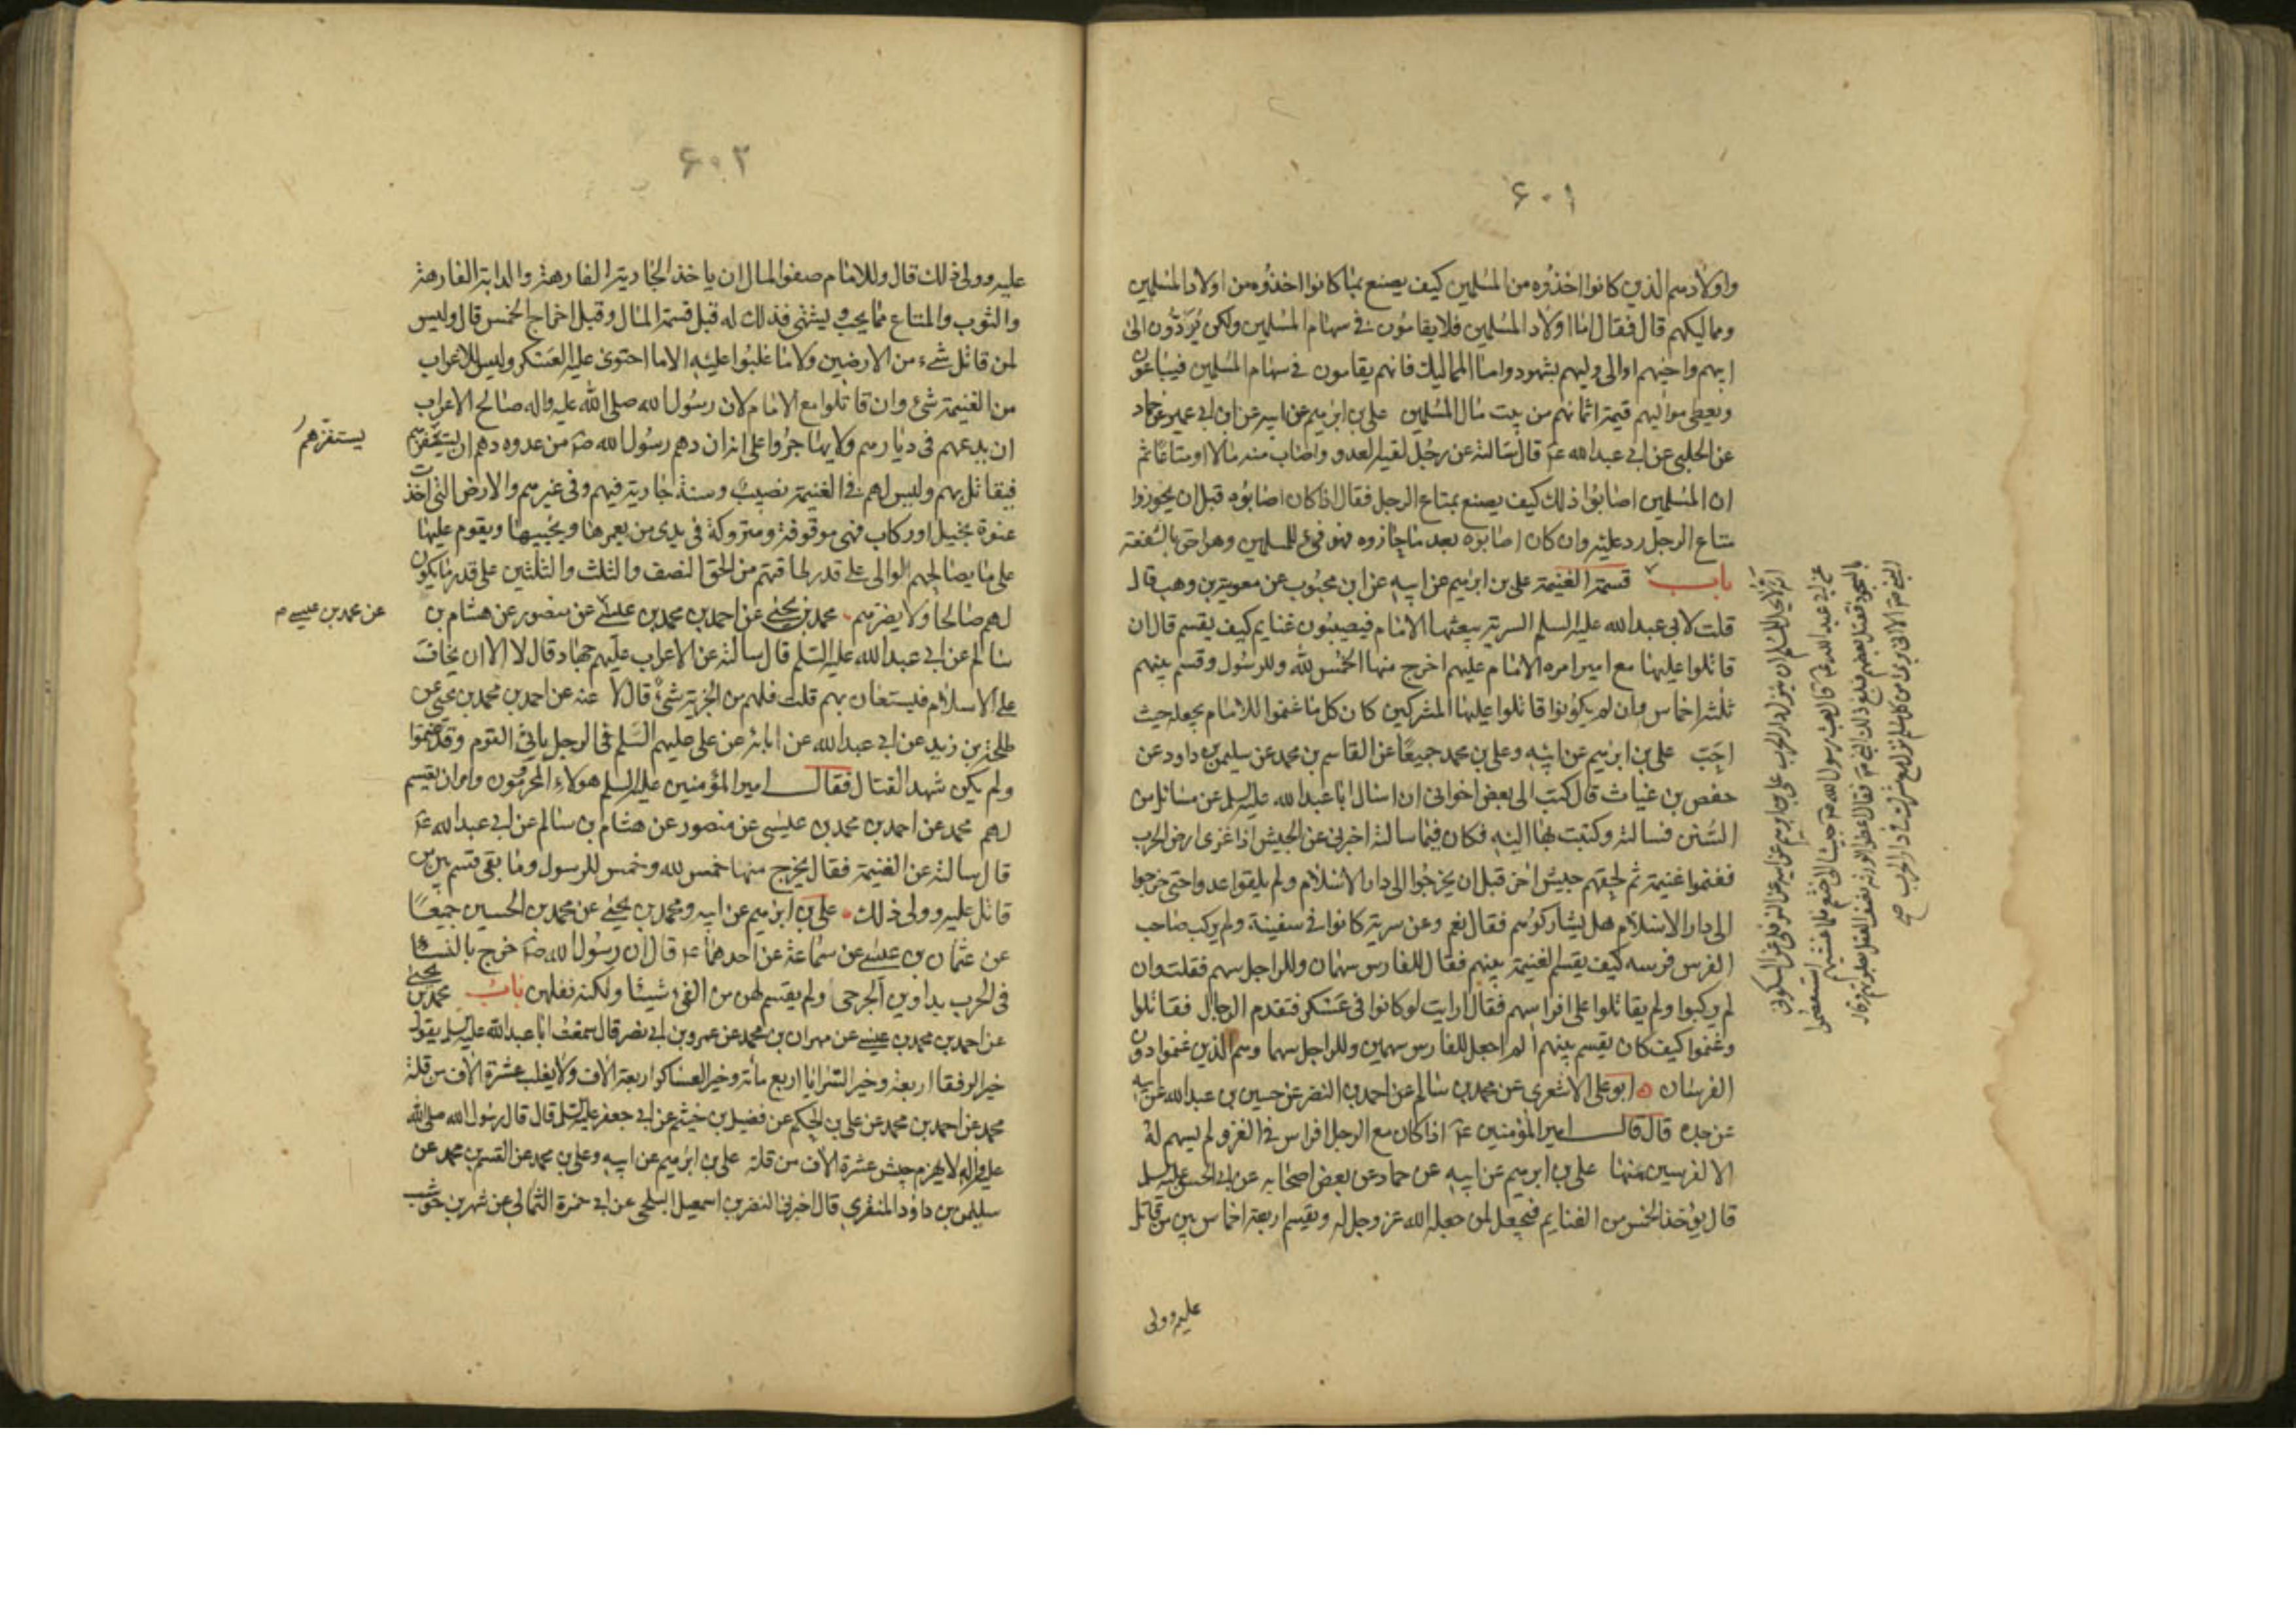 ٦٠١
واولادهم الذين كانوا اخذوه من المسلمين كيف يصنع بما كانوا اخذوه من اولاد المسلمين
ومماليكهم قال فقال اما اولاد المسلمين فلا يقامون في سهام المسلمين ولكن يردون الى
ابيهم واخيهم او الى وليهم بشهود واما المماليك فانهم يقامون في سهام المسلمين فيباعون
ويعطى مواليهم قيمة اثمانهم من بيت مال المسلمين علي بن ابرهيم عن ابيه عن ابن ابي عمير عن حماد
عن الحلبي عن ابي عبد الله عم قال سالته عن رجل لقيه العدو واصاب منه مالا او متاعا ثم
ان المسلمين اصابوا ذلك كيف يصنع بمتاع الرجل فقال اذا كان اصابوه قبل ان يحوزوا
متاع الرجل رد عليه وان كان اصابوه بعد ما حازوه فهو فئ للمسلمين وهو احق بالشفعة
باب قسمة الغنيمة علي بن ابرهيم عن ابيه عن ابن محبوب عن معوية بن وهب قال
قلت لابي عبد الله عليه السلم السرية يبعثها الامام فيصيبون غنايم كيف يقسم قال ان
قاتلوا عليها مع امير امره الامام عليهم اخرج منها الخمس لله وللرسول وقسم بينهم
ثلثة اخماس وان لم يكونوا قاتلوا عليها المشركين كان كل ما غنموا للامام يجعله حيث
احب علي بن ابرهيم عن ابيه وعلي بن محمد جميعا عن القاسم بن محمد عن سليمن بن داود عن
حفص بن غياث قال كتب الى بعض اخواني ان اسال ابا عبد الله عليه السلم عن مسائل من
السنن فسالته وكتبت بها اليه فكان فيما سالته اخبرني عن الجيش اذا غزى ارض الحرب
فغنموا غنيمة ثم لحقهم جيش اخر قبل ان يخرجوا الى دار الاسلام ولم يلقوا عدوا حتى خرجوا
الى دار الاسلام هل يشاركونهم فقال نعم وعن سرية كانوا في سفينة ولم يركب صاحب
الفرس فرسه كيف يقسم الغنيمة بينهم فقال للفارس سهمان وللراجل سهم فقلت وان
لم يركبوا ولم يقاتلوا على افراسهم فقال ارايت لو كانوا في عسكر فتقدم الرجال فقاتلوا
وغنموا كيف كان يقسم بينهم الم اجعل للفارس سهمين وللراجل سهما وهم الذين غنموا دون
الفرسان ابو علي الاشعري عن محمد بن سالم عن احمد بن النضر عن حسين بن عبد الله عن ابيه
عن جده قال قال امير المؤمنين عم اذا كان مع الرجل افراس في الغزو لم يسهم له
الا لفرسين منها علي بن ابرهيم عن ابيه عن حماد عن بعض اصحابه عن ابي الحسن عليه السلم
قال يؤخذ الخمس من الغنايم فيجعل لمن جعله الله عز وجل له ويقسم اربعة اخماس بين من قاتل
عليه وولى
علي بن ابرهيم عن ابيه عن النوفلي عن السكوني
عن ابي عبد الله عم قال بعث رسول الله صم جيشا الى خثعم فلما غشيهم استعصموا
بالسجود فقتل بعضهم فبلغ ذلك النبي صم فقال اعطوا الورثة نصف العقل بصلوتهم وقال
النبي صم الا اني برئ من كل مسلم نزل مع مشرك في دار الحرب صح
٦٠٢
عليه وولى ذلك قال وللامام صفو المال ان ياخذ الجارية الفارهة والدابة الفارهة
والثوب والمتاع مما يحب ويشتهي فذلك له قبل قسمة المال وقبل اخراج الخمس قال وليس
لمن قاتل شيء من الارضين ولا ما غلبوا عليه الا ما احتوى عليه العسكر وليس للاعراب
من الغنيمة شئ وان قاتلوا مع الامام لان رسول الله صلى الله عليه واله صالح الاعراب
ان يدعهم في ديارهم ولا يهاجروا على انه ان دهم رسول الله صم من عدوه دهم ان يستفزهم
يستفزهم
فيقاتل بهم وليس لهم في الغنيمة نصيب وسنة جارية فيهم وفي غيرهم والارض التي اخذت
عنوة بخيل او ركاب فهي موقوفة ومتروكة في يدي من يعمرها ويحييها ويقوم عليها
على ما يصالحهم الوالي على قدر طاقتهم من الحق النصف والثلث والثلثين على قدر ما يكون
لهم صالحا ولا يضرهم محمد بن يحيى عن احمد بن محمد بن عيسى عن منصور عن هشام بن
عن محمد بن عيسى
سالم عن ابي عبد الله عليه السلم قال سالته عن الاعراب عليهم جهاد قال لا الا ان يخاف
على الاسلام فيستعان بهم قلت فلهم من الجزية شئ قال لا عنه عن احمد بن محمد بن يحيى عن
طلحة بن زيد عن ابي عبد الله عن ابائه عن علي عليهم السلم في الرجل ياتي القوم وقد غنموا
ولم يكن شهد القتال فقال امير المؤمنين عليه السلم هولاء المحرومون وامر ان يقسم
لهم محمد عن احمد بن محمد بن عيسى عن منصور عن هشام بن سالم عن ابي عبد الله عم
قال سالته عن الغنيمة فقال يخرج منها خمس لله وخمس للرسول وما بقي قسم بين من
قاتل عليه وولى ذلك علي بن ابرهيم عن ابيه ومحمد بن يحيى عن محمد بن الحسين جميعا
عن عثمان بن عيسى عن سماعة عن احدهما عم قال ان رسول الله صم خرج بالنساء
في الحرب يداوين الجرحى ولم يقسم لهن من الفئ شيئا ولكنه نفلهن باب محمد بن يحيى
عن احمد بن محمد بن عيسى عن مهران بن محمد عن عمرو بن ابي نصر قال سمعت ابا عبد الله عليه السلم يقول
خير الرفقاء اربعة وخير السرايا اربع مائة وخير العساكر اربعة الاف ولا يغلب عشرة الاف من قلة
محمد عن احمد بن محمد عن علي بن الحكم عن فضيل بن خيثم عن ابي جعفر عليه السلم قال قال رسول الله صلى الله
عليه واله لا يهزم جيش عشرة الاف من قلة علي بن ابرهيم عن ابيه وعلي بن محمد عن القسم بن محمد عن
سليمن بن داود المنقري قال اخبرني النضر بن اسمعيل البلخي عن ابي حمزة الثمالي عن شهر بن حوشب